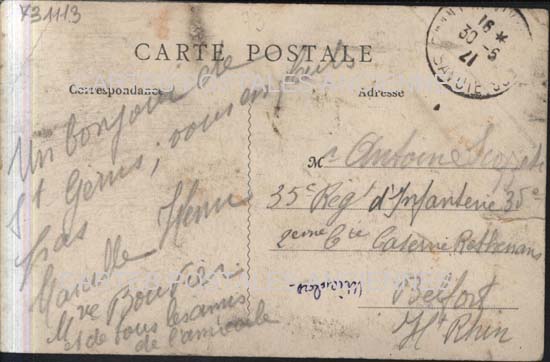 X31113
CARTE POSTALE
Correspondance
Adresse
16 *
30 - 5
21
SAVOIE
Un bonjour de
St Genis, vous en fais
pas
Marcelle Henri
Mve Bouvier
et de tous les amis
de l'amicale
Mr Antoine
35e Regt d'Infanterie 35e
2eme Cie Caserne Rethenans
Belfort
Ht Rhin